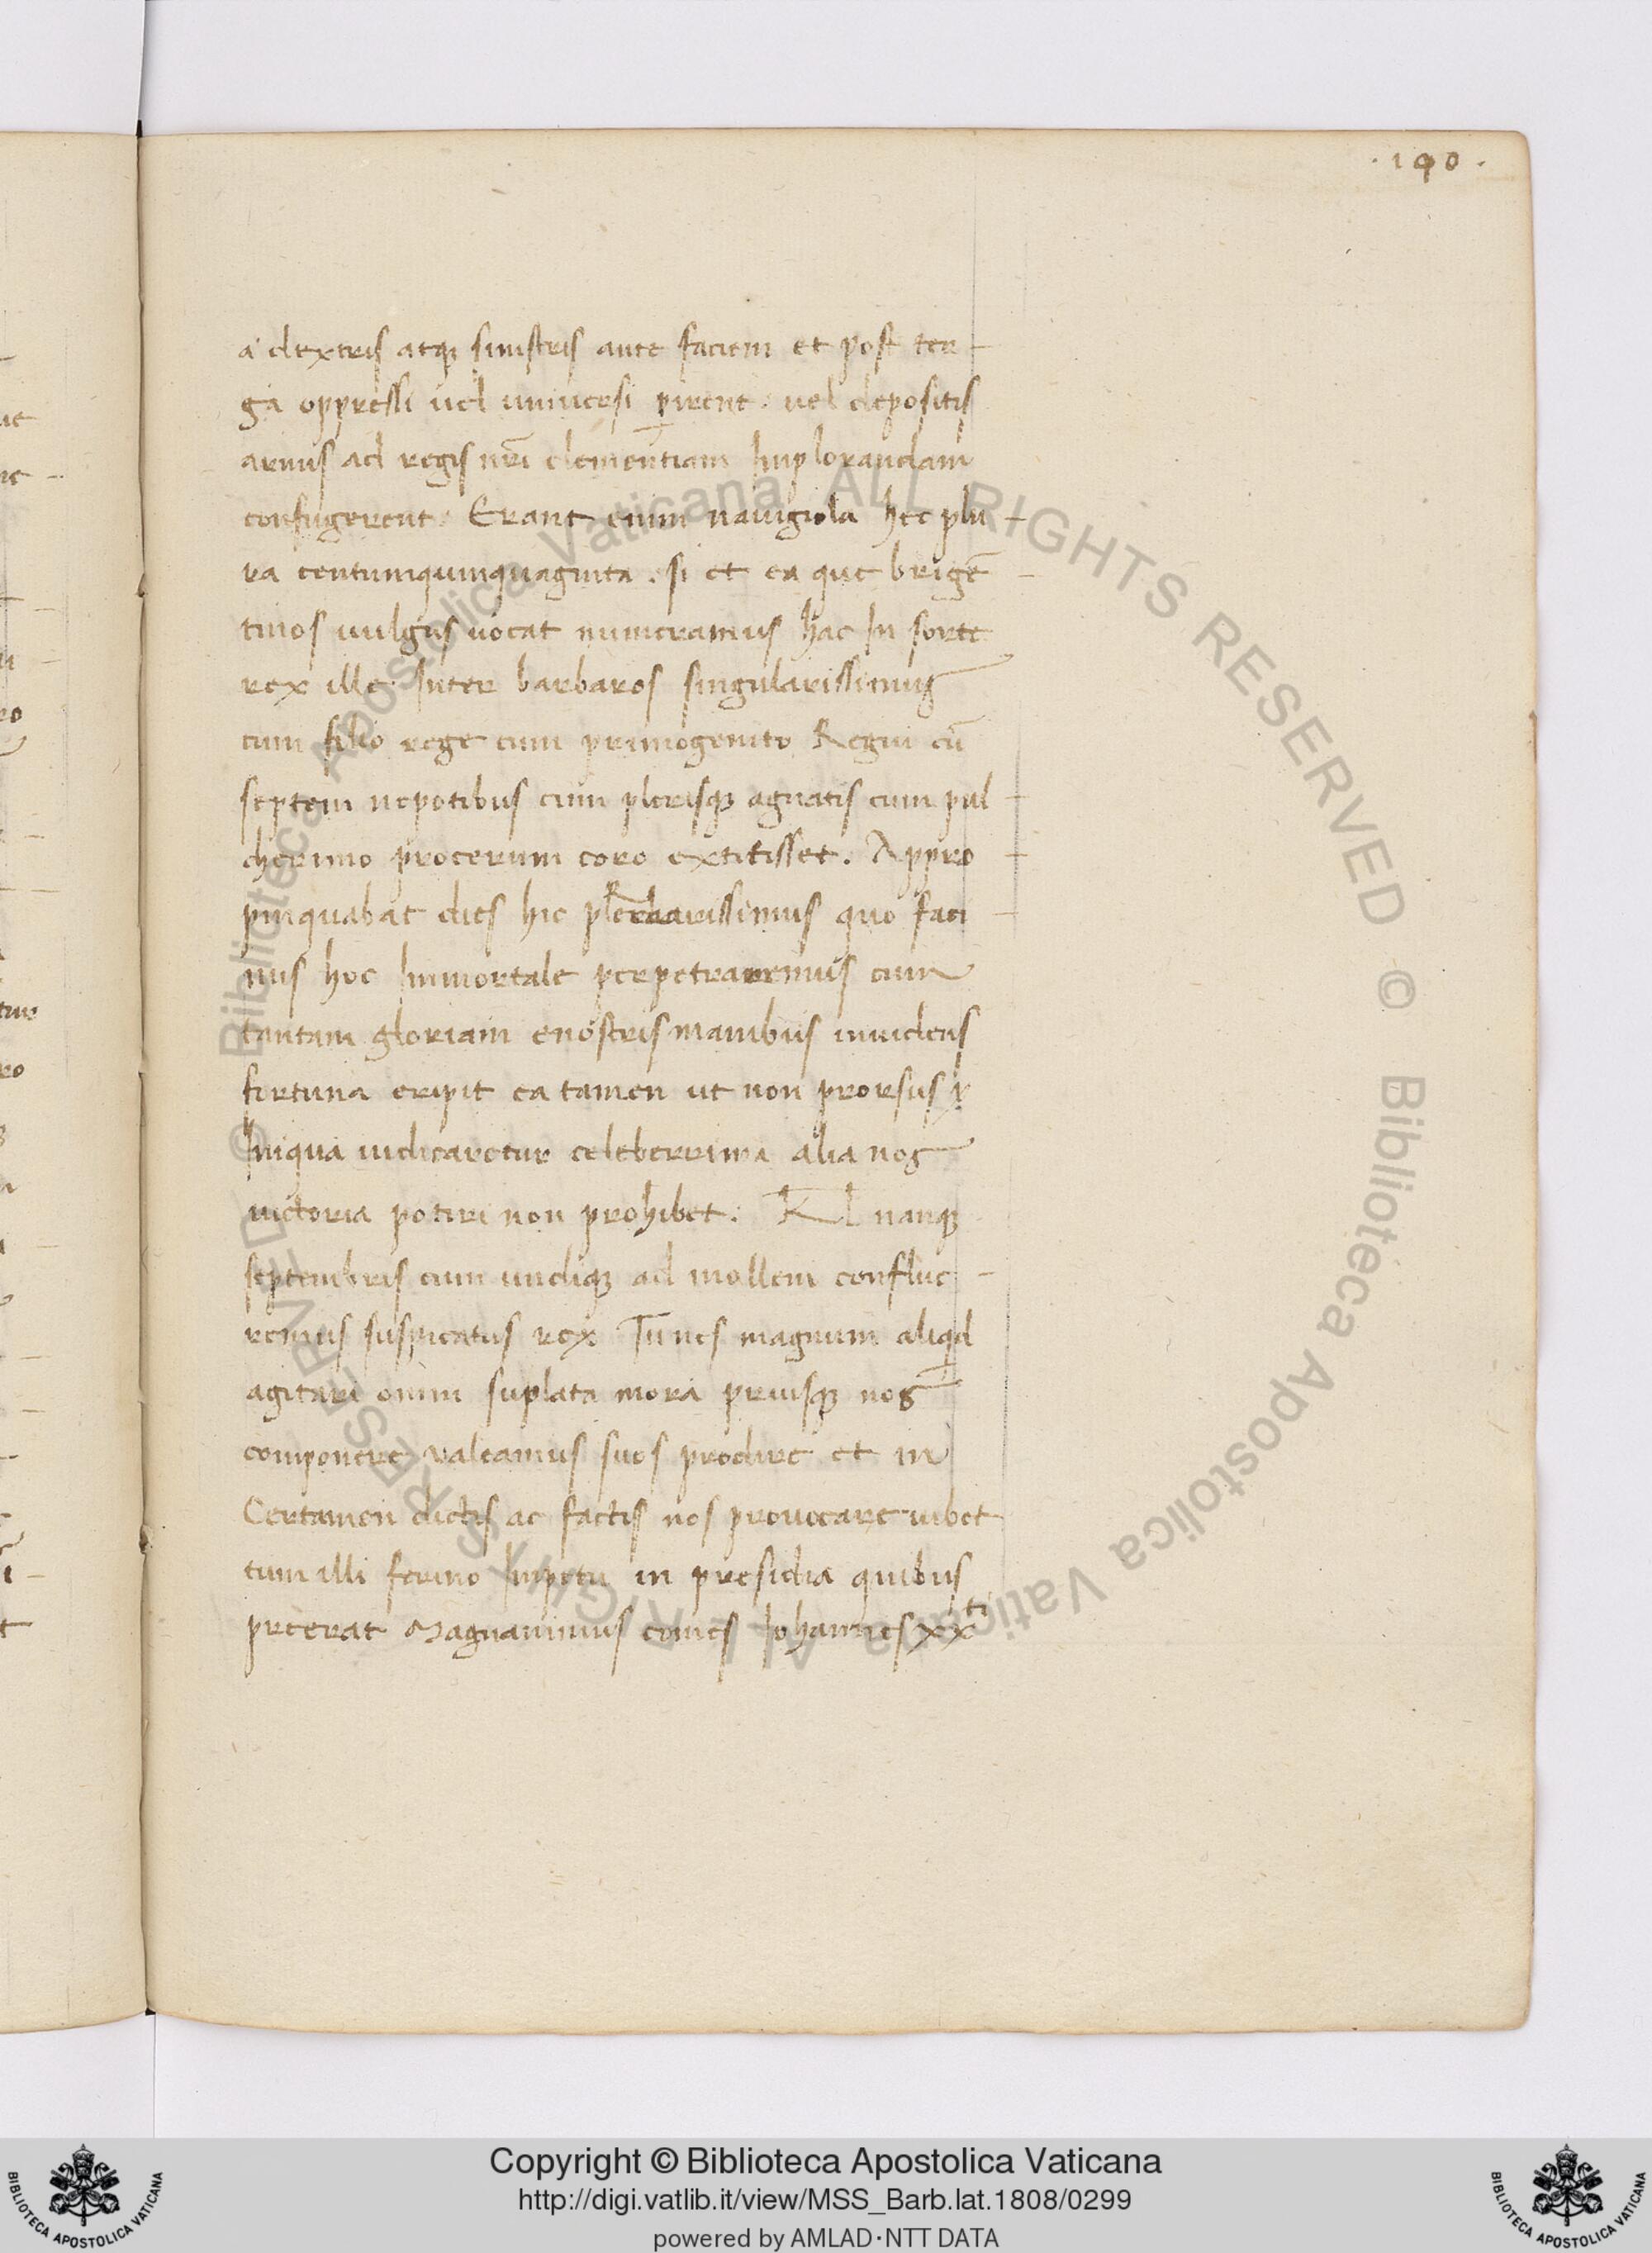 . 190 .
a dextris atqꝫ sinistris ante faciem et post ter-
ga oppressi uel uniuersi ꝑirent. uel depositis
armis ad regis nr̄i clementiam Implorandam
confugerent. Erant enim nauigiola hec plu-
ra centumquinquaginta. si et ea que brigē-
tinos uulgus uocat numeramus hac In sorte
rex ille Inter barbaros singularissimus
cum filio rege cum primogenito Regni cū
septem nepotibus cum plerisqꝫ agnatis cum pul-
cherimo procerum coro extitisset. Appro-
pinquabat dies hic quo faci-
nus hoc Immortale perpetraremus cum
tantam gloriam enostris manibus inuidens
fortuna eripit ea tamen ut non prorsus
Iniqua iudicaretur celeberrima alia nos
uictoria potiri non prohibet. Kl nanqꝫ
septembris cum undiqꝫ ad mollem conflue-
remus suspicatus rex Tunes magnum aliqd
agitari omni suplata mora priusqꝫ nos
componere valeamus suos prodire et in
Certamen dictis ac factis nos prouocare iubet
tum illi ferino Impetu in presidia quibus
preerat Magnanimus comes Iohannes xxti
Copyright © Biblioteca Apostolica Vaticana
http://digi.vatlib.it/view/MSS_Barb.lat.1808/0299
powered by AMLAD·NTT DATA
BIBLIOTECA APOSTOLICA VATICANA
BIBLIOTECA APOSTOLICA VATICANA
© Biblioteca Apostolica Vaticana ALL RIGHTS RESERVED © Biblioteca Apostolica Vaticana ALL RIGHTS RESERVED